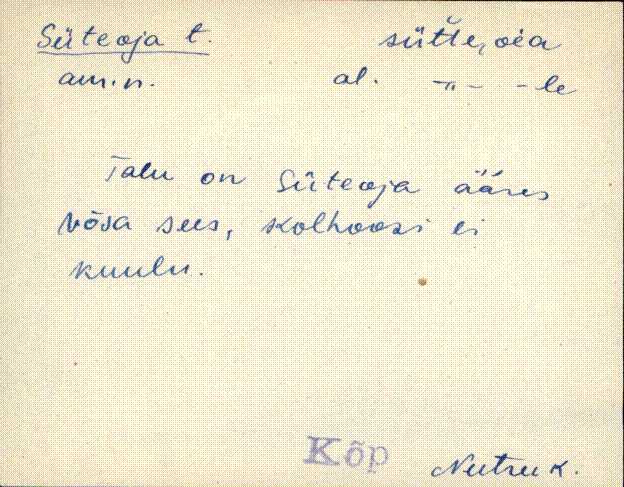 Süteoja t. sütte, oia
am. n. al. -"- -le
Talu on Süteoja ääres
võsa sees, kolhoosi ei
kuulu.
Kõp
Nutru k.